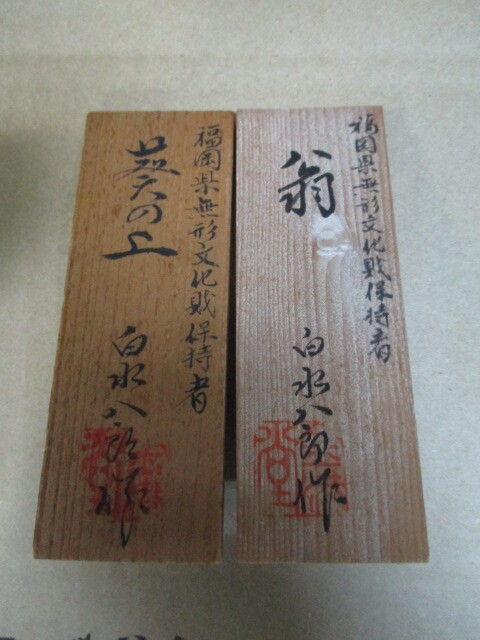 福岡県無形文化財保持者
翁
白水八郎作
福岡県無形文化財保持者
葵の上
白水八郎作